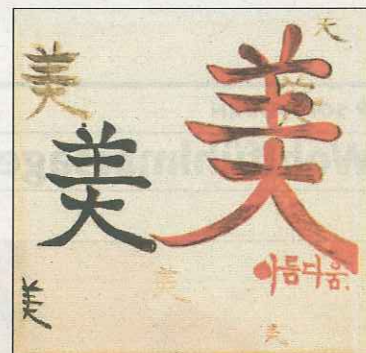 美
美
美
아름다움.
美